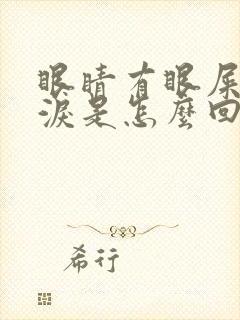 眼睛有眼屎
淚是怎麼回
希行